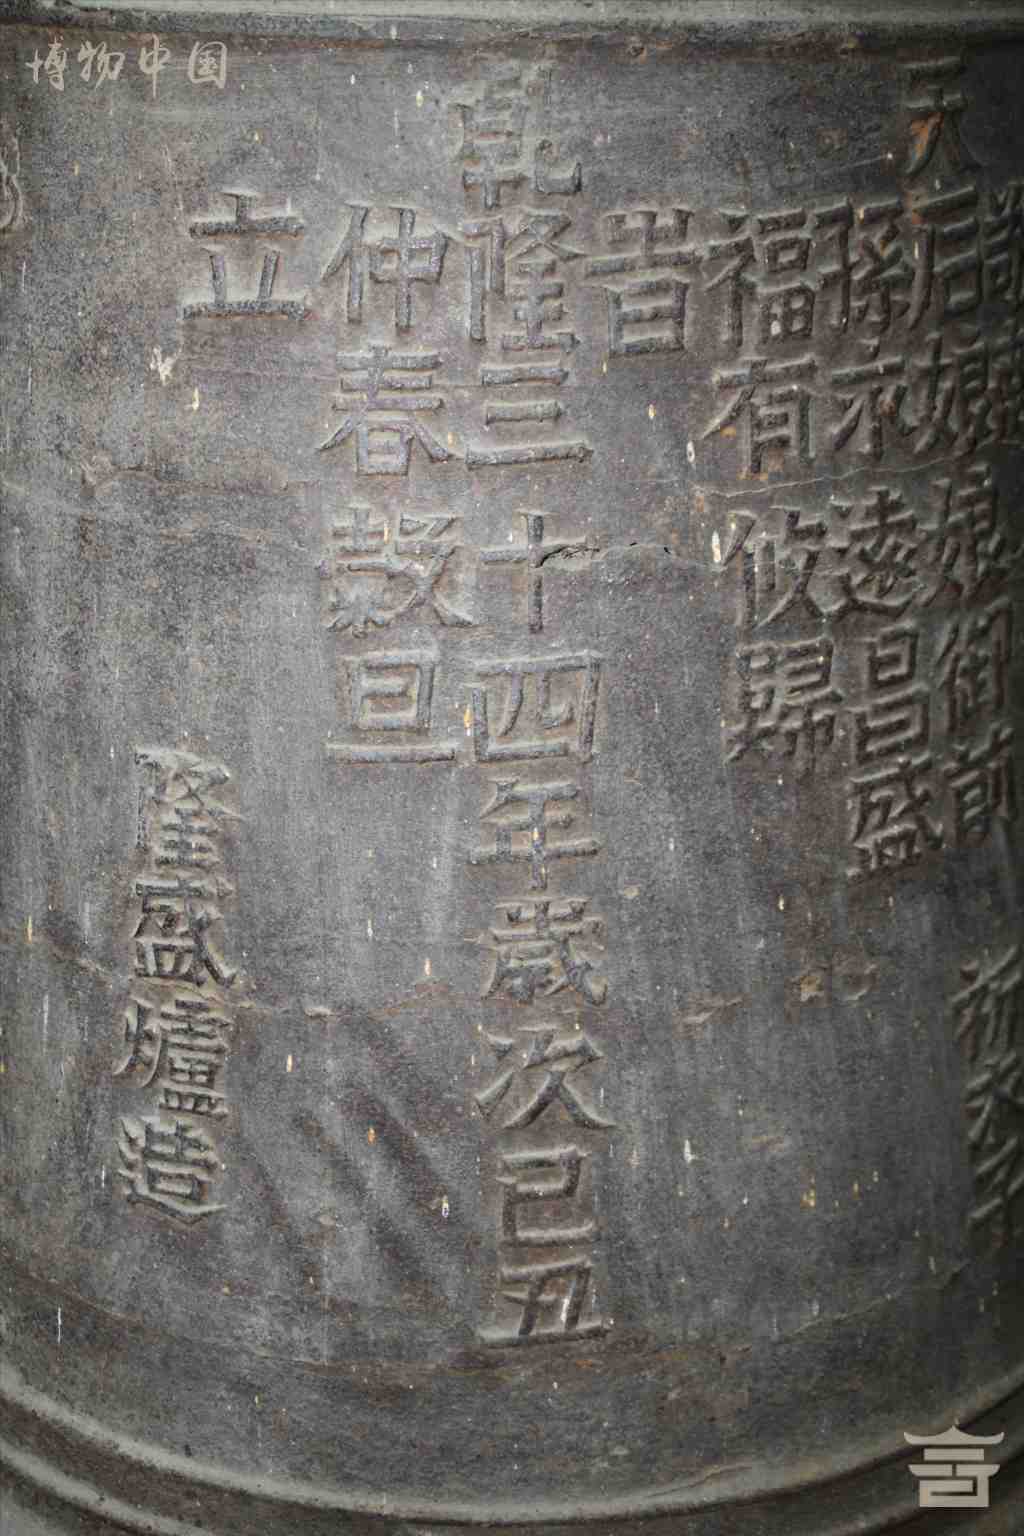 博物中国
祈冬
天后娘娘御前
孫永遠昌盛
福有攸歸
旹
乾隆三十四年歲次己丑
仲春穀旦
立
隆盛爐造